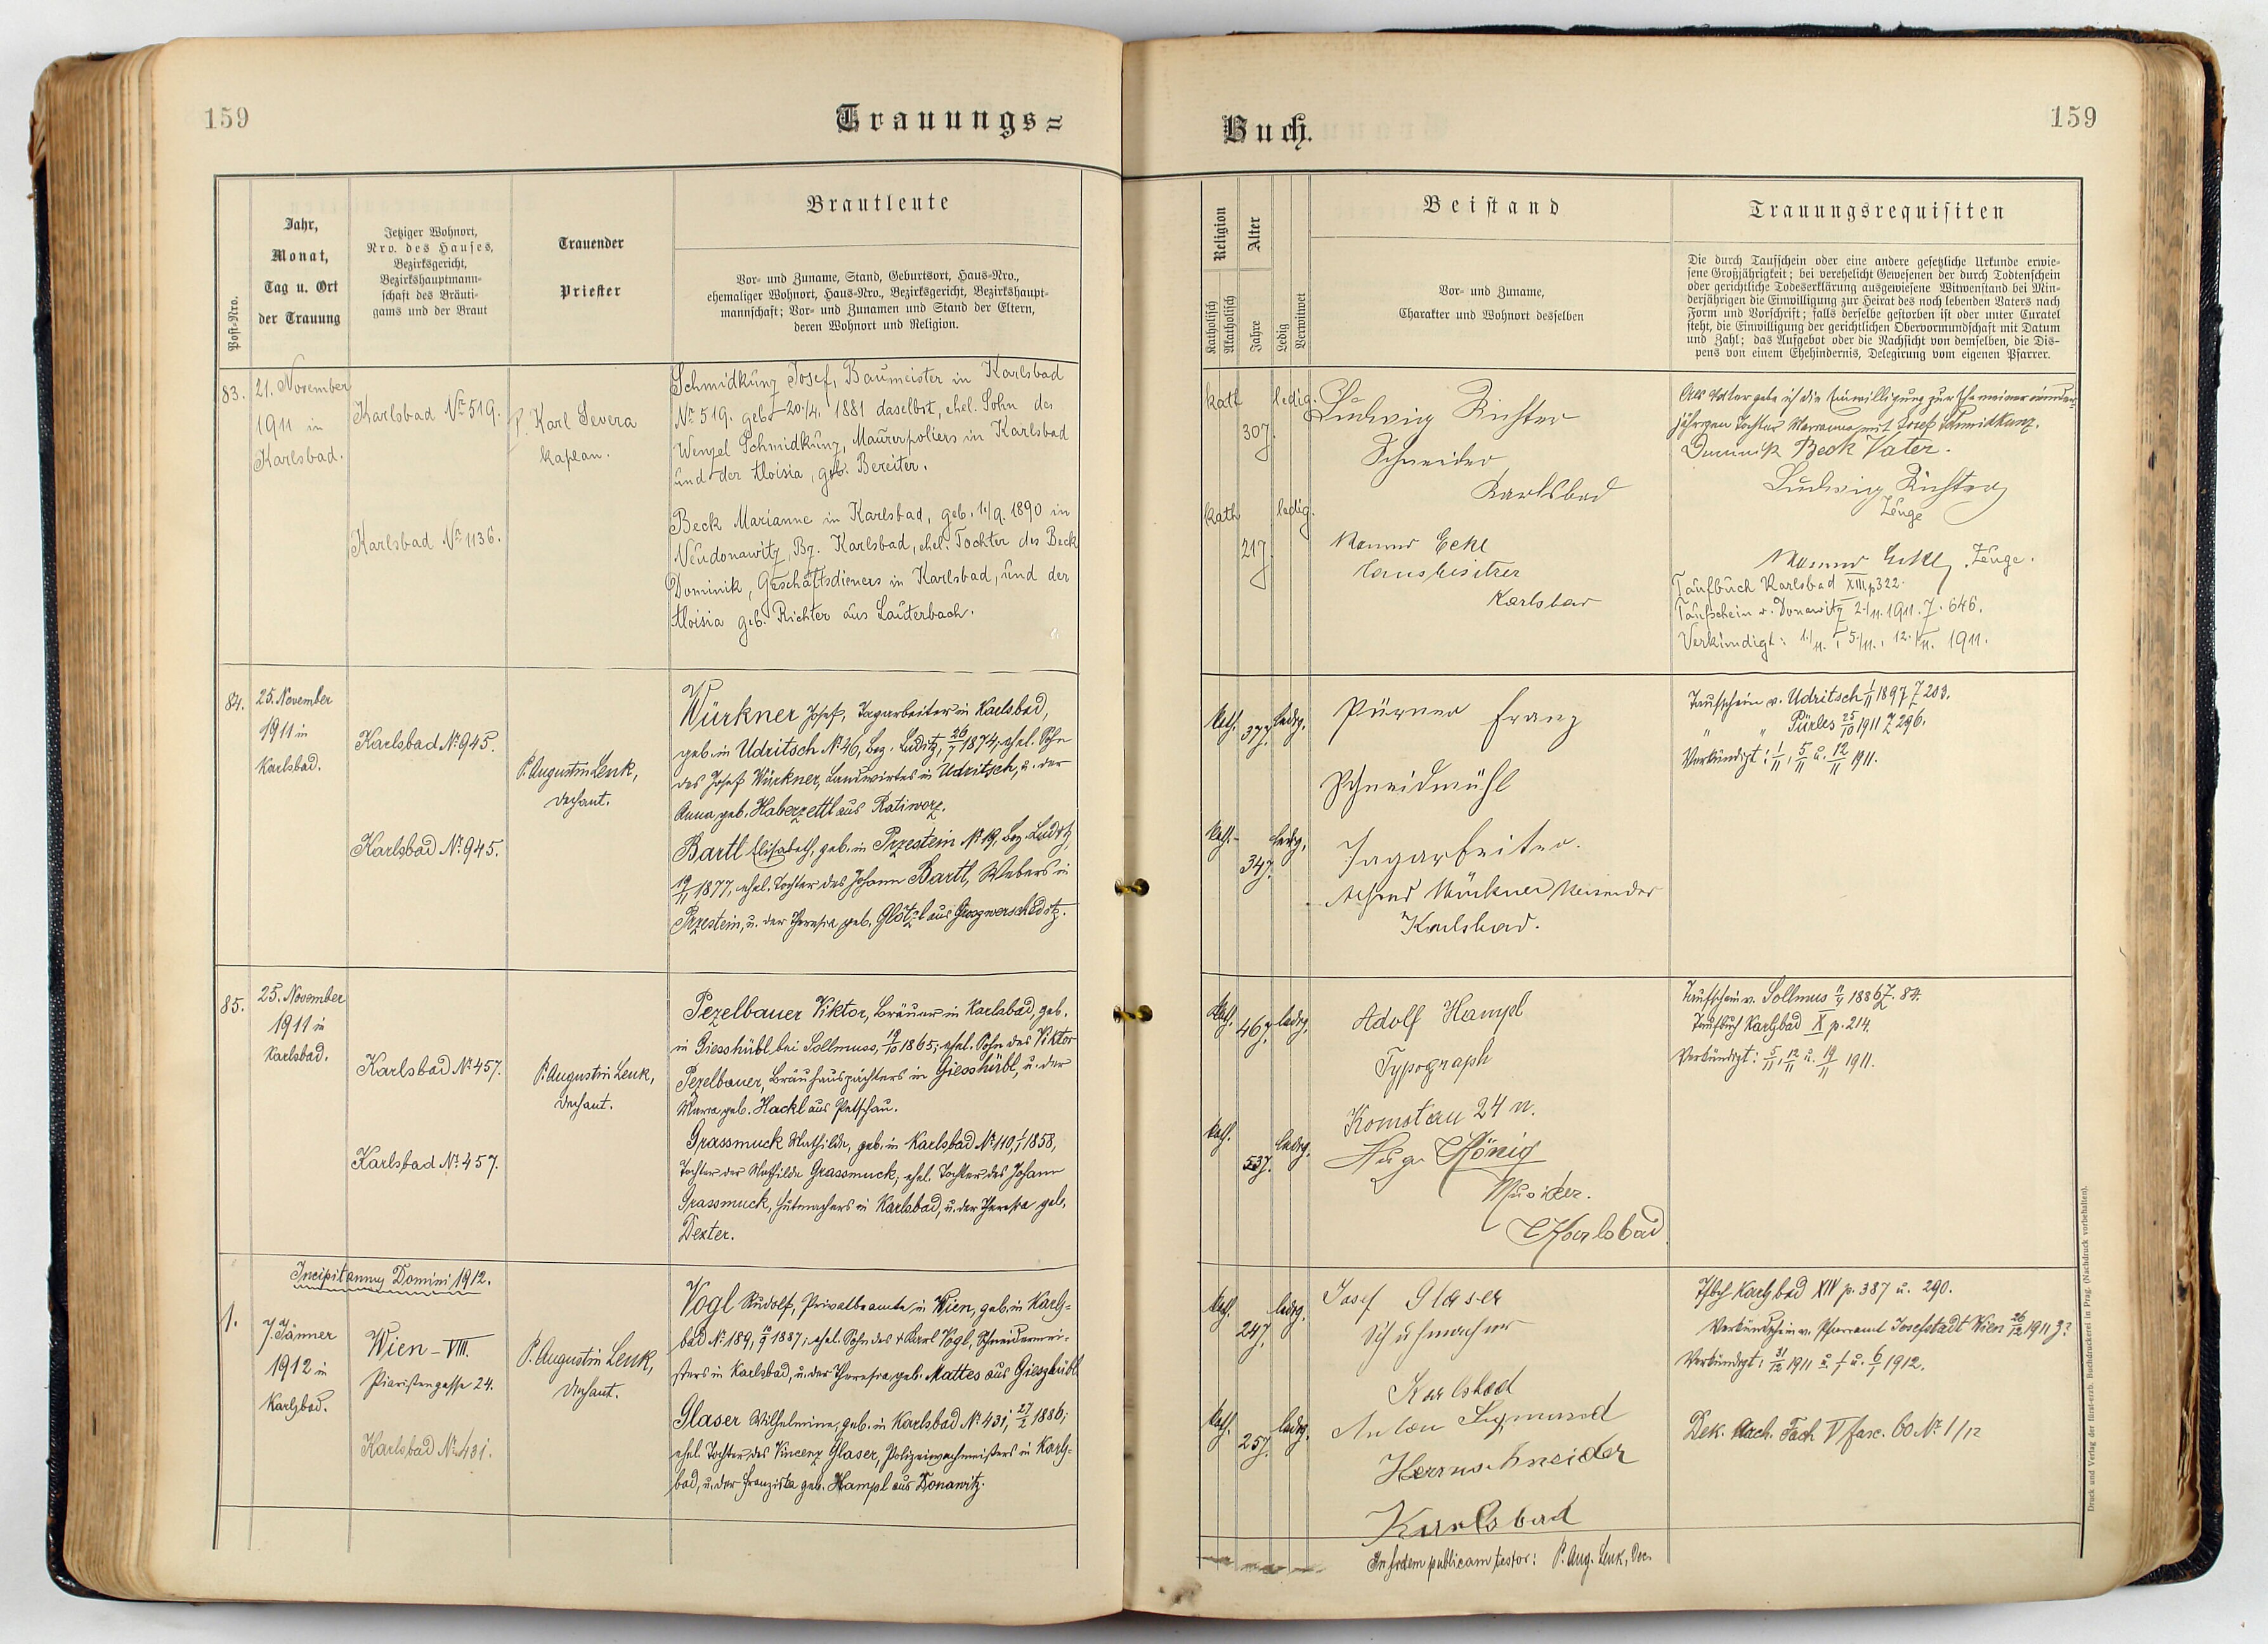 159
Trauungs=
Jahr,
Monat,
Tag u. Ort
der Trauung
Post-Nro.
Jetziger Wohnort,
Nro. des Hauses,
Bezirksgericht,
Bezirkshauptmann-
schaft des Bräuti-
gams und der Braut
Trauender
Priester
Brautleute
Vor- und Zuname, Stand, Geburtsort, Haus-Nro.,
ehemaliger Wohnort, Haus-Nro., Bezirksgericht, Bezirkshaupt-
mannschaft; Vor- und Zunamen und Stand der Eltern,
deren Wohnort und Religion.
83.
21. November
1911 in
Karlsbad.
Karlsbad Nr. 519.
Karlsbad Nr. 1136.
P. Karl Severa
Kaplan.
Schmidkunz Josef, Baumeister in Karlsbad
Nr. 519. geb. 20./4. 1881 daselbst, ehel. Sohn des
Wenzel Schmidkunz, Maurerpoliers in Karlsbad
und der Aloisia, geb. Bereiter.
Beck Marianne in Karlsbad, geb. 1./9. 1890 in
Neudonawitz, Bz. Karlsbad, ehel. Tochter des Beck
Dominik, Geschäftsdieners in Karlsbad, und der
Aloisia geb. Richter aus Lauterbach.
84.
25. November
1911 in
Karlsbad.
Karlsbad Nr. 945.
Karlsbad Nr. 945.
P. Augustin Lenk,
Dechant.
Würkner Josef, Tagarbeiter in Karlsbad,
geb. in Udritsch Nr. 46, Bez. Luditz, 26/7 1874; ehel. Sohn
des Josef Würkner, Landwirtes in Udritsch, u. der
Anna geb. Haberzettl aus Ratiworz.
Bartl Elisabeth, geb. in Przestein Nr. 19, Bez. Luditz,
1877, ehel. Tochter des Johann Bartl, Webers in
Przestein, u. der Theresia geb. Glötzl aus Grosswerscheditz.
85.
25. November
1911 in
Karlsbad.
Karlsbad Nr. 457.
Karlsbad Nr. 457.
P. Augustin Lenk,
Dechant.
Pezelbauer Viktor, Bräuer in Karlsbad, geb.
in Giesshübl bei Sollmuss, 19/10 1865; ehel. Sohn des Viktor
Pezelbauer, Bräuhauspächters in Giesshübl, u. der
Maria geb. Hackl aus Petschau.
Grassmuck Mathilde, geb. in Karlsbad Nr. 110, 1858,
Tochter der Mathilde Grassmuck; ehel. Tochter des Johann
Grassmuck, Hutmachers in Karlsbad, u. der Theresia geb.
Dexter.
Incipit annus Domini 1912.
1.
7. Jänner
1912 in
Karlsbad.
Wien - VIII.
Piaristengasse 24.
Karlsbad Nr. 431.
P. Augustin Lenk,
Dechant.
Vogl Rudolf, Privatbeamte in Wien, geb. in Karls=
bad Nr. 189, 1887; ehel. Sohn des + Karl Vogl, Schneidermei-
sters in Karlsbad, u. der Theresia geb. Mattes aus Giesshübl
Glaser Wilhelmine, geb. in Karlsbad Nr. 431; 27/2 1886;
ehel. Tochter des Vincenz Glaser, Polizeiwachmeisters in Karls=
bad, u. der Franziska geb. Hampl aus Donawitz.
Buch.
159
Religion
Katholisch
Akatholisch
Alter
Jahre
Ledig
Verwitwet
Beistand
Vor- und Zuname,
Charakter und Wohnort desselben
Trauungsrequisiten
Die durch Taufschein oder eine andere gesetzliche Urkunde erwie-
sene Großjährigkeit; bei verehelicht Gewesenen der durch Todtenschein
oder gerichtliche Todeserklärung ausgewiesene Witwenstand bei Min-
derjährigen die Einwilligung zur Heirat des noch lebenden Vaters nach
Form und Vorschrift; falls derselbe gestorben ist oder unter Curatel
steht, die Einwilligung der gerichtlichen Obervormundschaft mit Datum
und Zahl; das Aufgebot oder die Nachsicht von demselben, die Dis-
pens von einem Ehehindernis, Delegirung vom eigenen Pfarrer.
kath
30 J.
ledig.
kath
21 J.
ledig.
Ludwig Richter
Schneider
Karlsbad
Eckl
Hausbesitzer
Karlsbad
Als Vater gebe ich die Einwilligung zur Ehe meiner minder=
jährigen Tochter Marianne mit Josef Schmidkunz.
Dominik Beck Vater.
Ludwig Richter
Zeuge
Eckl, Zeuge.
Taufbuch Karlsbad XIII p 322.
Taufschein v. Donawitz 2./11. 1911. Z. 646.
Verkündigt: 1./11., 5./11., 12./11. 1911.
kath.
37 J.
ledig.
kath.
34 J.
ledig.
Pürner Franz
Schneidmühl
Tagarbeiter.
Alfred Würkner
Karlsbad.
Taufschein v. Udritsch 1/11 1897 Z 203.
" " Pürles 25/10 1911 Z 296.
Verkündigt: 1/11, 5/11 u. 12/11 1911.
kath.
46 J.
ledig.
kath.
53 J.
ledig.
Adolf Hampl
Typograph
Komotau 24 n.
Hugo König
Musiker.
Karlsbad
Taufschein v. Sollmus 1886 Z. 84.
Taufbuch Karlsbad X p. 214.
Verkündigt: 5/11, 12/11 u. 19/11 1911.
kath.
24 J.
ledig.
kath.
25 J.
ledig.
Josef Glaser
Schuhmacher
Karlsbad
Anton Sigmund
Herrnschneider
Karlsbad
Tfbch Karlsbad XIV p. 387 u. 290.
Verkündschein v. Pfarramt Josefstadt Wien 26/12 1911
Verkündigt: 31/12 1911 u. 1/1 u. 6/1 1912.
Dek. Arch. Fach V fasc. 60 Nr. 1/12
In fidem publicam testor: P. Aug. Lenk, Dec.
Druck und Verlag der fürst-erzb. Buchdruckerei in Prag. (Nachdruck vorbehalten).